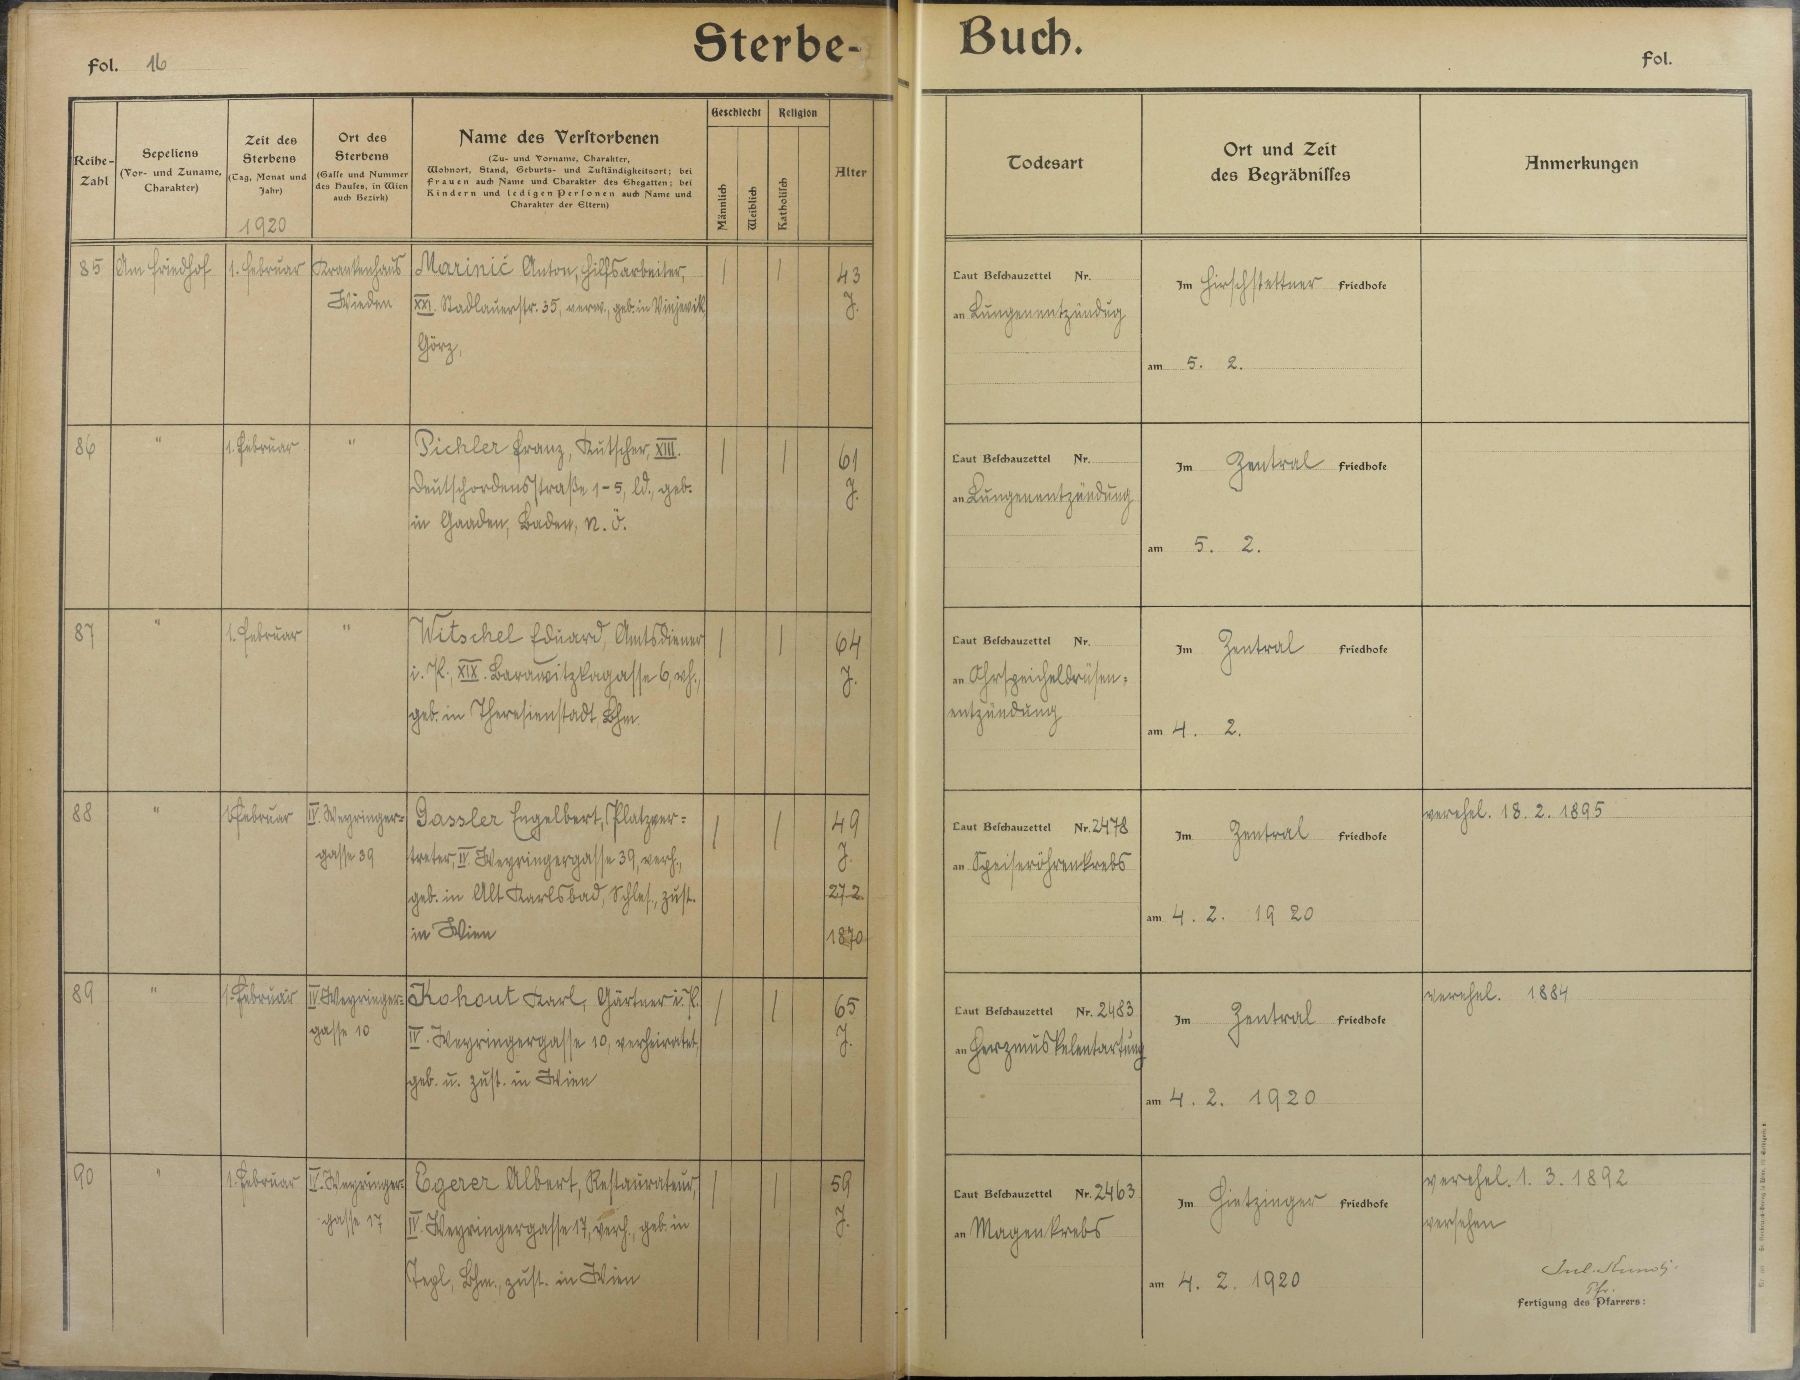 Sterbe-Buch.
Fol. 16
Fol.
Reihe-Zahl
Sepeliens
(Vor- und Zuname, Charakter)
Zeit des Sterbens
(Tag, Monat und Jahr)
1920
Ort des Sterbens
(Gasse und Nummer des Hauses, in Wien auch Bezirk)
Name des Verstorbenen
(Zu- und Vorname, Charakter,
Wohnort, Stand, Geburts- und Zuständigkeitsort; bei
Frauen auch Name und Charakter des Ehegatten; bei
Kindern und ledigen Personen auch Name und
Charakter der Eltern)
Geschlecht
Männlich
Weiblich
Religion
Katholisch
Alter
Todesart
Ort und Zeit
des Begräbnisses
Anmerkungen
85
Am Friedhof
1. Februar
Krankenhaus
Wieden
Marinić Anton, Hilfsarbeiter,
XXI. Stadlauerstr. 35, verw., geb. in
Görz,
43
J.
Laut Beschauzettel Nr.
an Lungenentzündug
Im Hirschstettner Friedhofe
am 5. 2.
86
"
1. Februar
"
Pichler Franz, Kutscher, XIII.
Deutschordensstraße 1-5, ld., geb.
in Gaaden, Baden, N. Ö.
61
J.
Laut Beschauzettel Nr.
an Lungenentzündung
Im Zentral Friedhofe
am 5. 2.
87
"
1. Februar
"
Witschel Eduard, Amtsdiener
i. P., XIX. Barawitzkagasse 6, vh.,
geb. in Theresienstadt, Bhm.
64
J.
Laut Beschauzettel Nr.
an Ohrspeicheldrüsen-
entzündung
Im Zentral Friedhofe
am 4. 2.
88
"
Februar
IV. Weyringer-
gasse 39
Gassler Engelbert, Platzver-
treter, IV. Weyringergasse 39, verh.,
geb. in Alt Karlsbad, Schles., zust.
in Wien
49
J.
27.2.
1870
Laut Beschauzettel Nr. 2478
an Speiseröhrenkrebs
Im Zentral Friedhofe
am 4. 2. 1920
verehel. 18. 2. 1895
89
"
1. Februar
IV. Weyringer-
gasse 10
Kohout Karl, Gärtner i. P.
IV. Weyringergasse 10, verheiratet,
geb. u. zust. in Wien
65
J.
Laut Beschauzettel Nr. 2483
an Herzmuskelentartung
Im Zentral Friedhofe
am 4. 2. 1920
verehel. 1884
90
"
1. Februar
IV. Weyringer-
gasse 17
Egerer Albert, Restaurateur,
IV. Weyringergasse 17, verh., geb. in
Tepl, Bhm., zust. in Wien
59
J.
Laut Beschauzettel Nr. 2463
an Magenkrebs
Im Hietzinger Friedhofe
am 4. 2. 1920
verehel. 1. 3. 1892
versehen
Pfr.
Fertigung des Pfarrers: